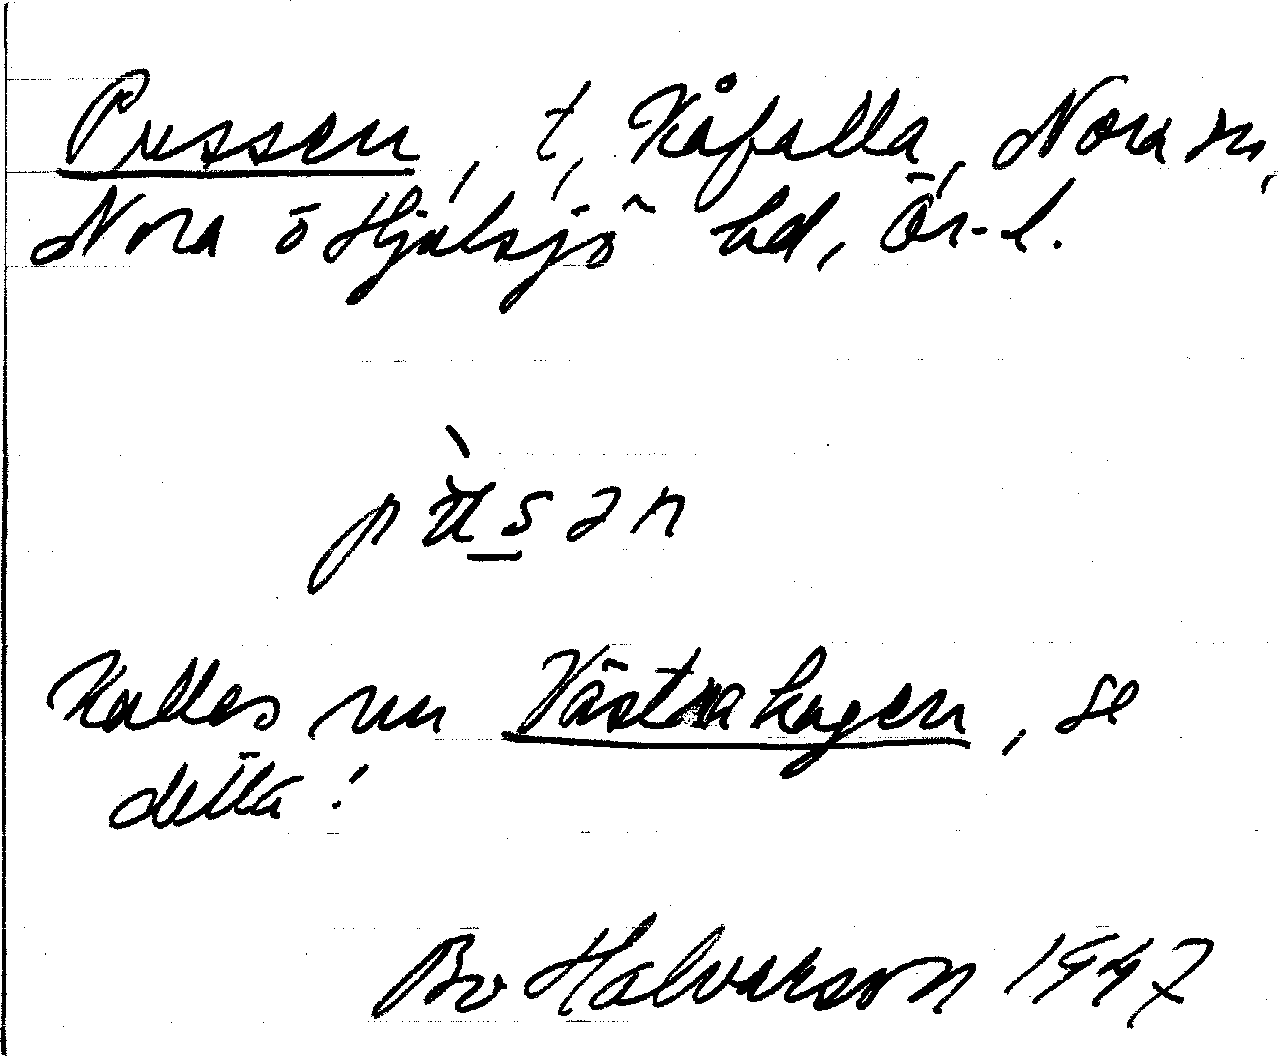 Pussen, t, Kåfalla, Nora sn,
Nora o Hjulsjö hd, Ör-l.
pùsən
Kalles nu Västra hagen, se
detta!
Bo Halvarson 1947